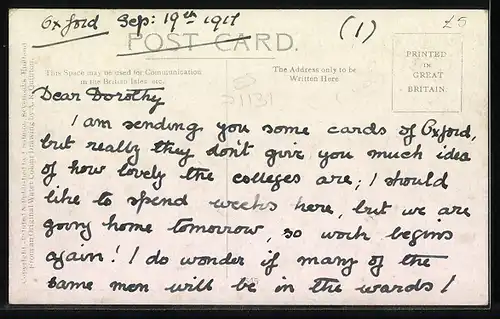 Oxford Sep: 19th 1917 (1) £5
POST CARD.
This Space may be used for Communication
in the British Isles, etc.
The Address only to be
Written Here.
PRINTED
IN
GREAT
BRITAIN
Dear Dorothy
I am sending you some cards of Oxford,
but really they don't give you much idea
of how lovely the colleges are; I should
like to spend weeks here, but we are
going home tomorrow, so work begins
again! I do wonder if many of the
same men will be in the wards!